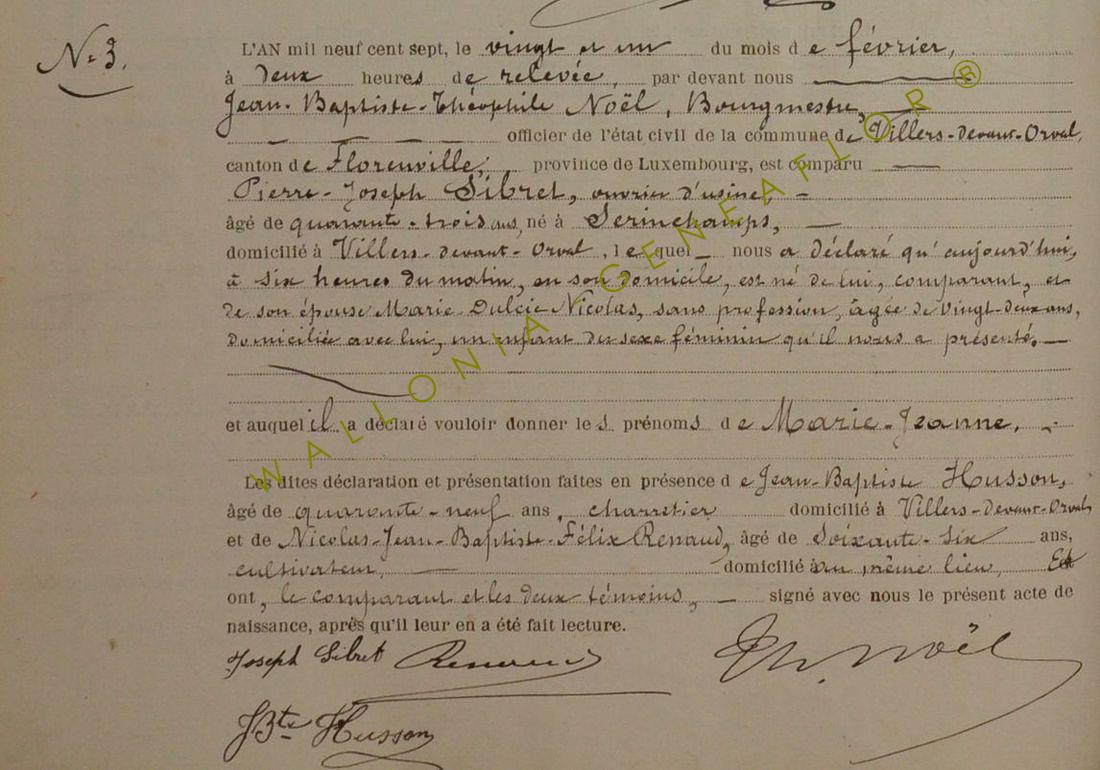 N. 3.
L'AN mil neuf cent sept, le vingt et un du mois de février,
à deux heures de relevée, par devant nous
Jean-Baptiste-Théophile Noël, Bourgmestre,
officier de l'état civil de la commune de Villers-devant-Orval,
canton de Florenville, province de Luxembourg, est comparu
Pierre-Joseph Sibret, ouvrier d'usine,
âgé de quarante-trois ans, né à Serinchamps,
domicilié à Villers-devant-Orval, lequel nous a déclaré qu'aujourd'hui,
à six heures du matin, en son domicile, est né de lui, comparant, et
de son épouse Marie-Dulcie Nicolas, sans profession, âgée de vingt-deux ans,
domiciliée avec lui, un enfant du sexe féminin qu'il nous a présenté,
et auquel il a déclaré vouloir donner les prénoms de Marie-Jeanne,
Les dites déclaration et présentation faites en présence de Jean-Baptiste Husson,
âgé de quarante-neuf ans, charretier domicilié à Villers-devant-Orval,
et de Nicolas-Jean-Baptiste-Félix Renaud, âgé de soixante-six ans,
cultivateur, domicilié au même lieu, Et
ont, le comparant et les deux témoins, signé avec nous le présent acte de
naissance, après qu'il leur en a été fait lecture.
Joseph Sibret Renaud Th. Noël
JBte Husson
WALLONIA GENEAFLOR ®